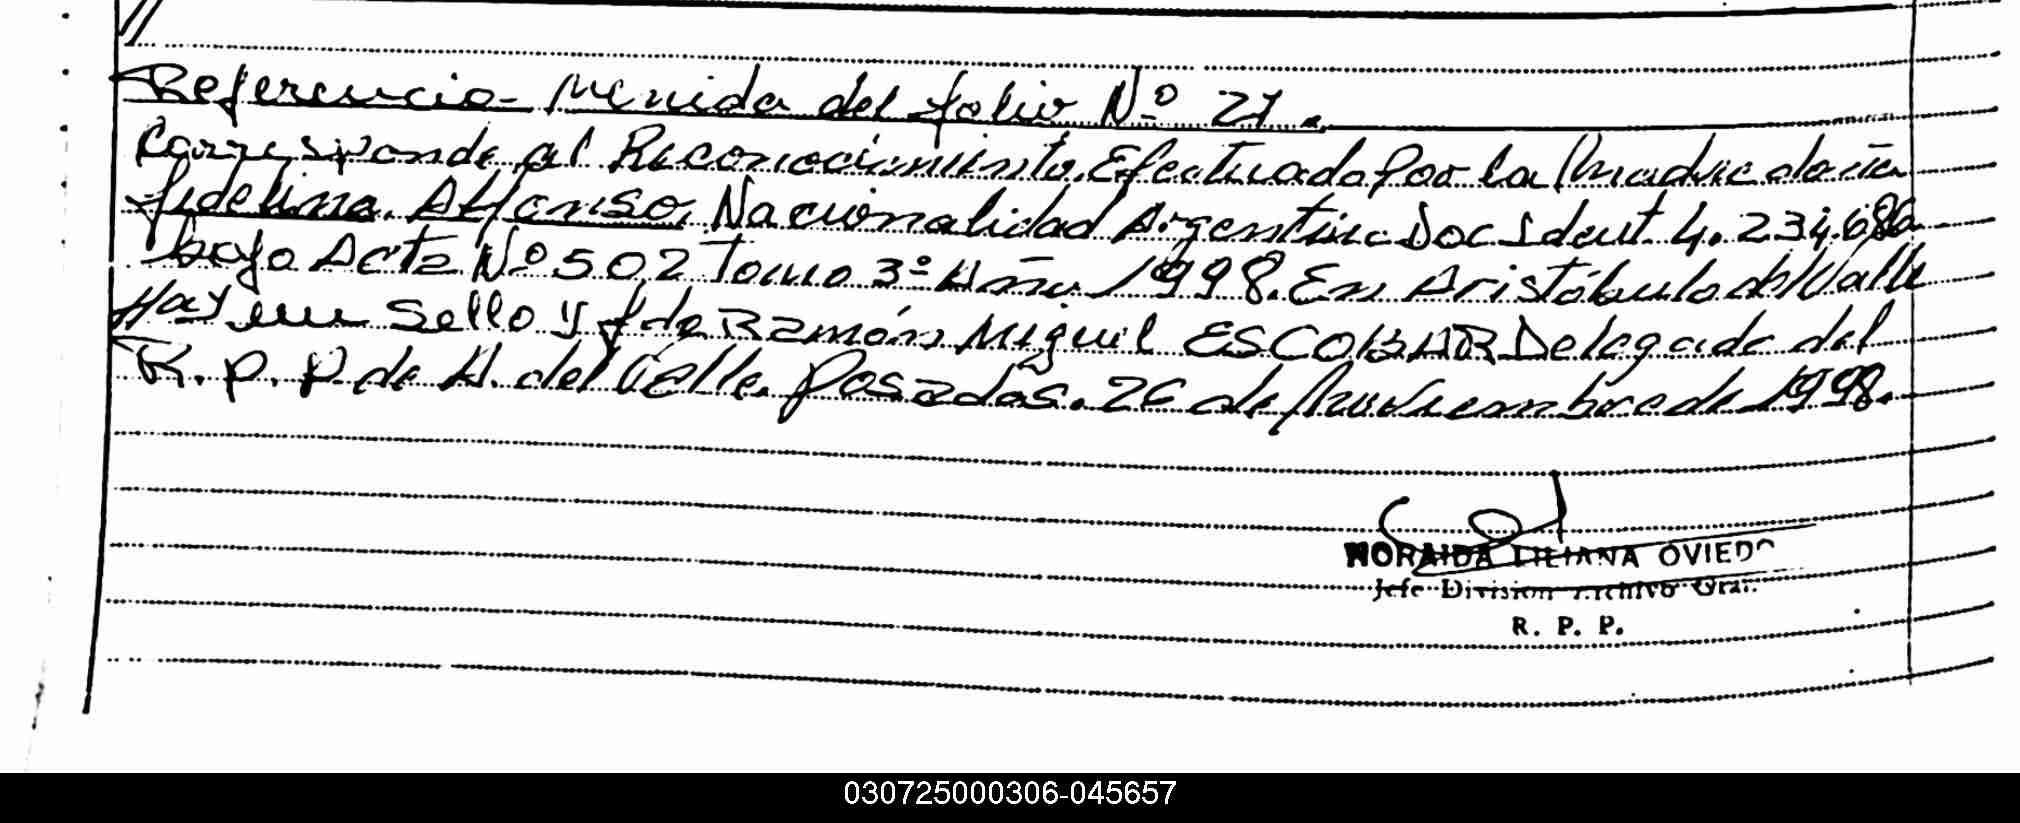 //
Referencia Venida del folio Nº 21.
Corresponde al Reconocimiento Efectuado Por la Madre doña
fidelina Alfonso, Nacionalidad Argentina Doc Ident. 4.234.680
bajo Acta Nº 502 Tomo 3º Año 1998. En Aristóbulo del Valle
Hay un Sello y fdo Ramón Miguel ESCOBAR Delegado del
R. P. P. de A. del Valle. Posadas. 26 de Noviembre de 1998.
NORAIDA LILIANA OVIEDO
Jefe Division Archivo Gral.
R. P. P.
030725000306-045657